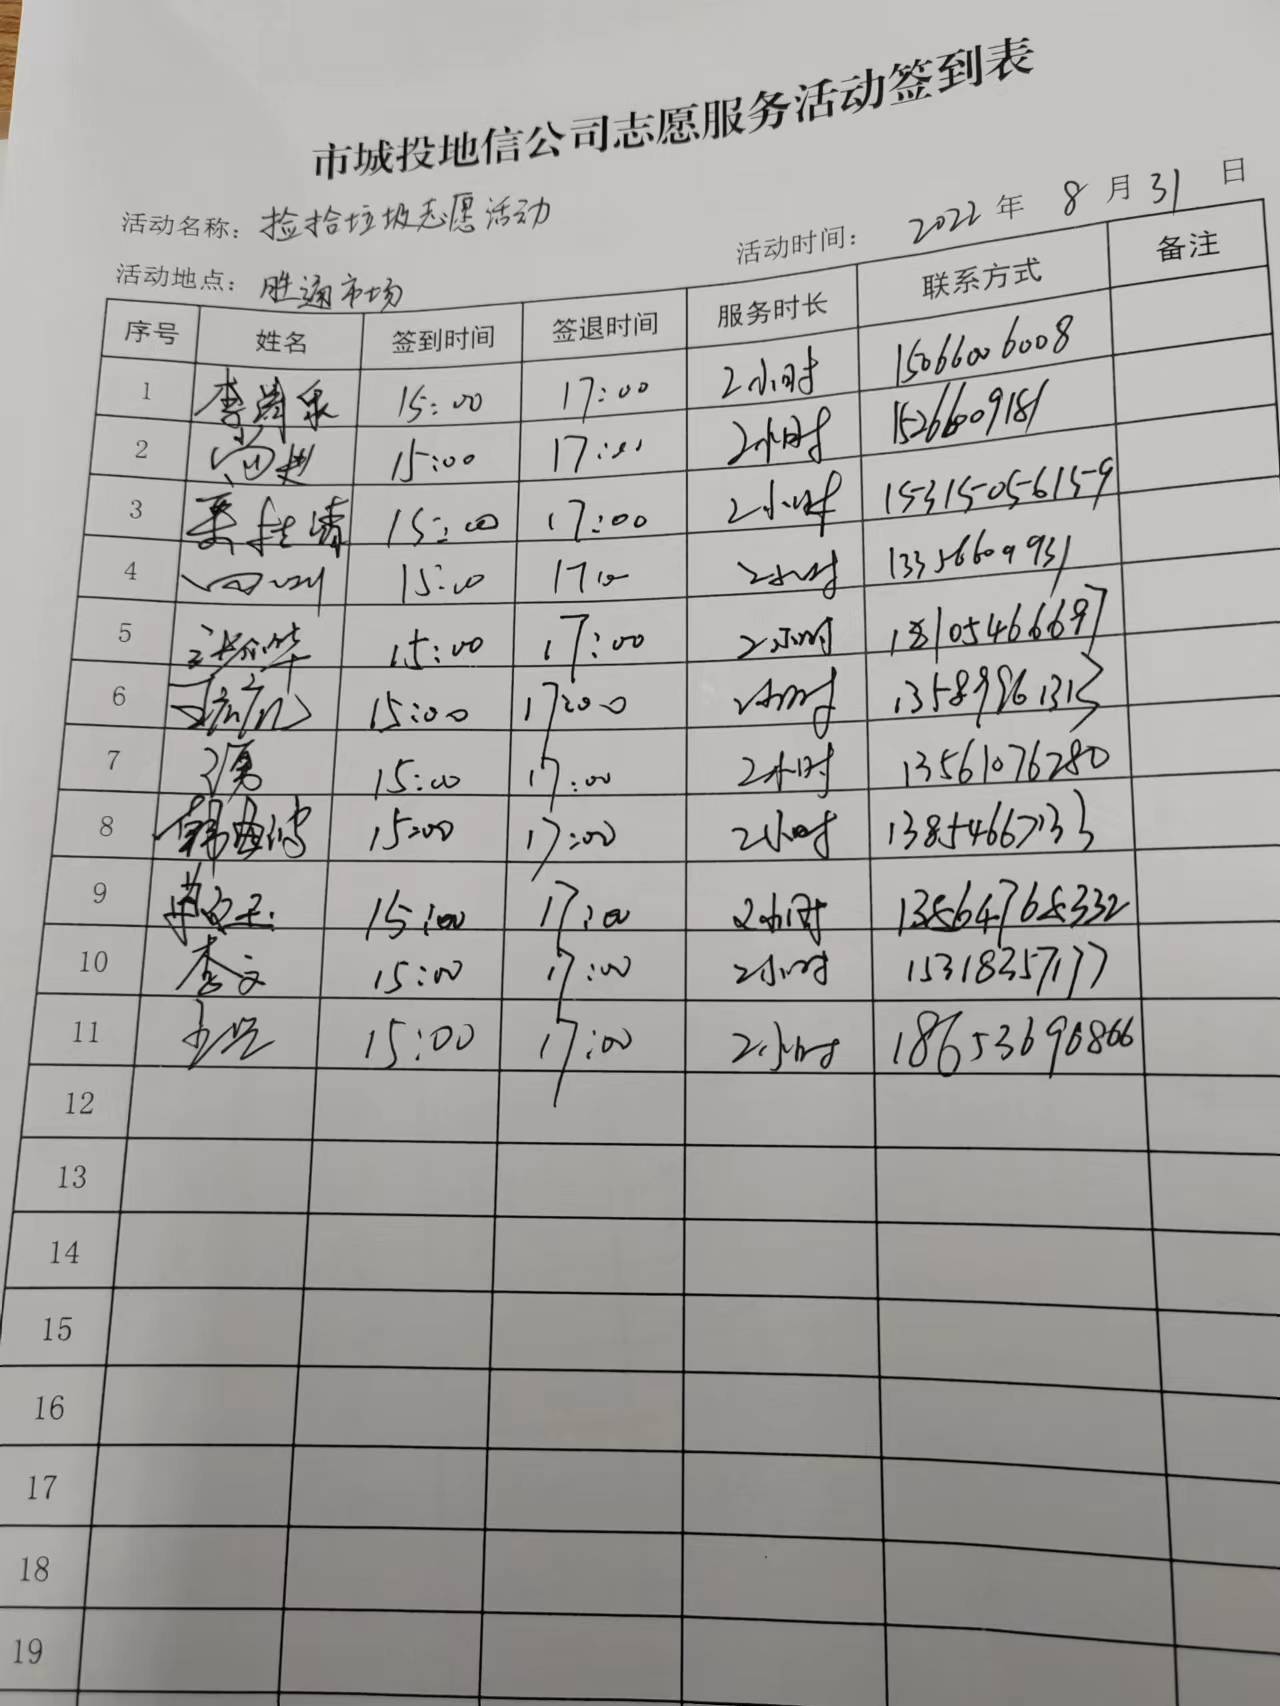 市城投地信公司志愿服务活动签到表
活动名称：捡拾垃圾志愿活动
活动时间：2022年8月31日
活动地点：胜通市场
序号 姓名 签到时间 签退时间 服务时长 联系方式 备注
1 15:00 17:00 2小时 15066006008
2 15:00 17:00 2小时 15266009181
3 15:00 17:00 2小时 15315056159
4 15:00 17:00 2小时 13356609931
5 15:00 17:00 2小时
6 15:00 17:00 2小时 135899861313
7 15:00 17:00 2小时 13561076280
8 15:00 17:00 2小时 13854667133
9 15:00 17:00 2小时
10 李文 15:00 17:00 2小时 15318357177
11 15:00 17:00 2小时 18653690866
12
13
14
15
16
17
18
19